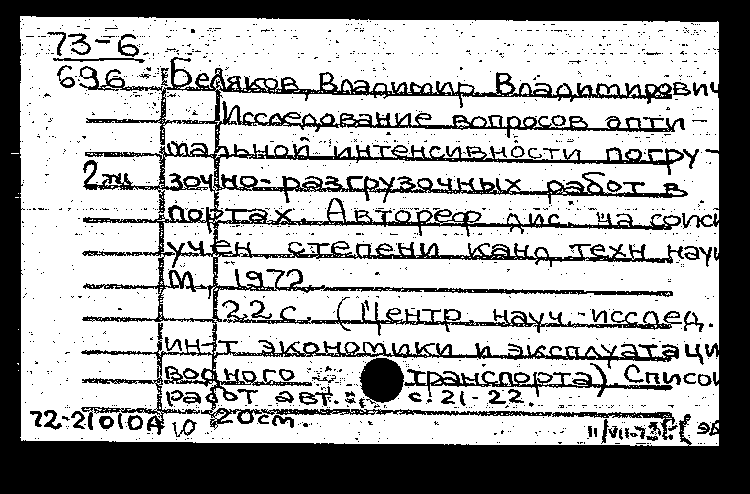 73-6
696 Беляков, Владимир Владимирович
Исследование вопросов опти-
мальной интенсивности погру-
2 экз зочно-разгрузочных работ в
портах. Автореф дис. на соиск
учен степени канд техн наук
М, 1972.
22 с. (Центр. науч.-исслед.
ин-т экономики и эксплуатаци
водного транспорта) Список
работ авт.: с. 21-22.
72-21010А 10 20см. 11/VII-73г.